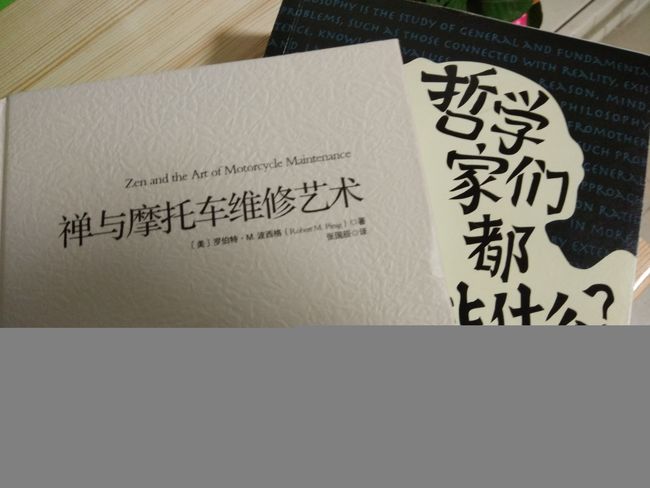 Zen and the Art of Motorcycle Maintenance
禅与摩托车维修艺术
[美]罗伯特·M.波西格(Robert M. Pirsig)◎著
张国辰◎译
PHILOSOPHY IS THE STUDY OF GENERAL AND FUNDAMENTAL
PROBLEMS, SUCH AS THOSE CONNECTED WITH REALITY, EXIS
KNOWLEDGE, VALUES, REASON, MIND,
PHILOSOPHY
FROM OTHE
SUCH PROB
GENERAL
APPROACH
ON RATIO
IN MORE
BY EXTE
哲学
家们
都
什么?